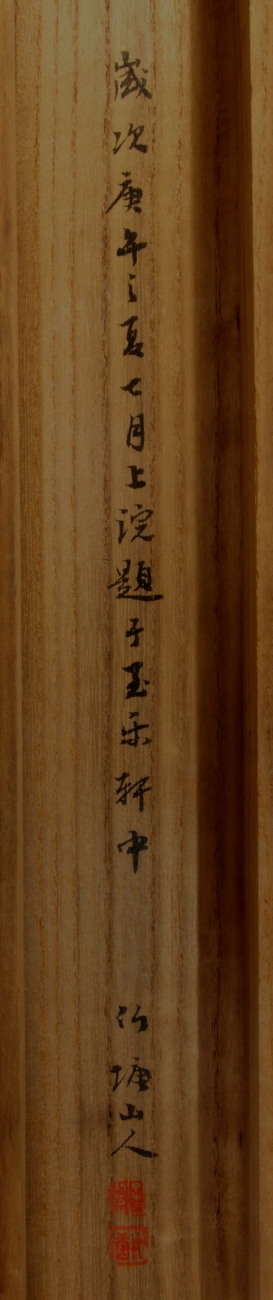 歳次庚午之夏七月上浣題于至乐軒中 竹塘山人